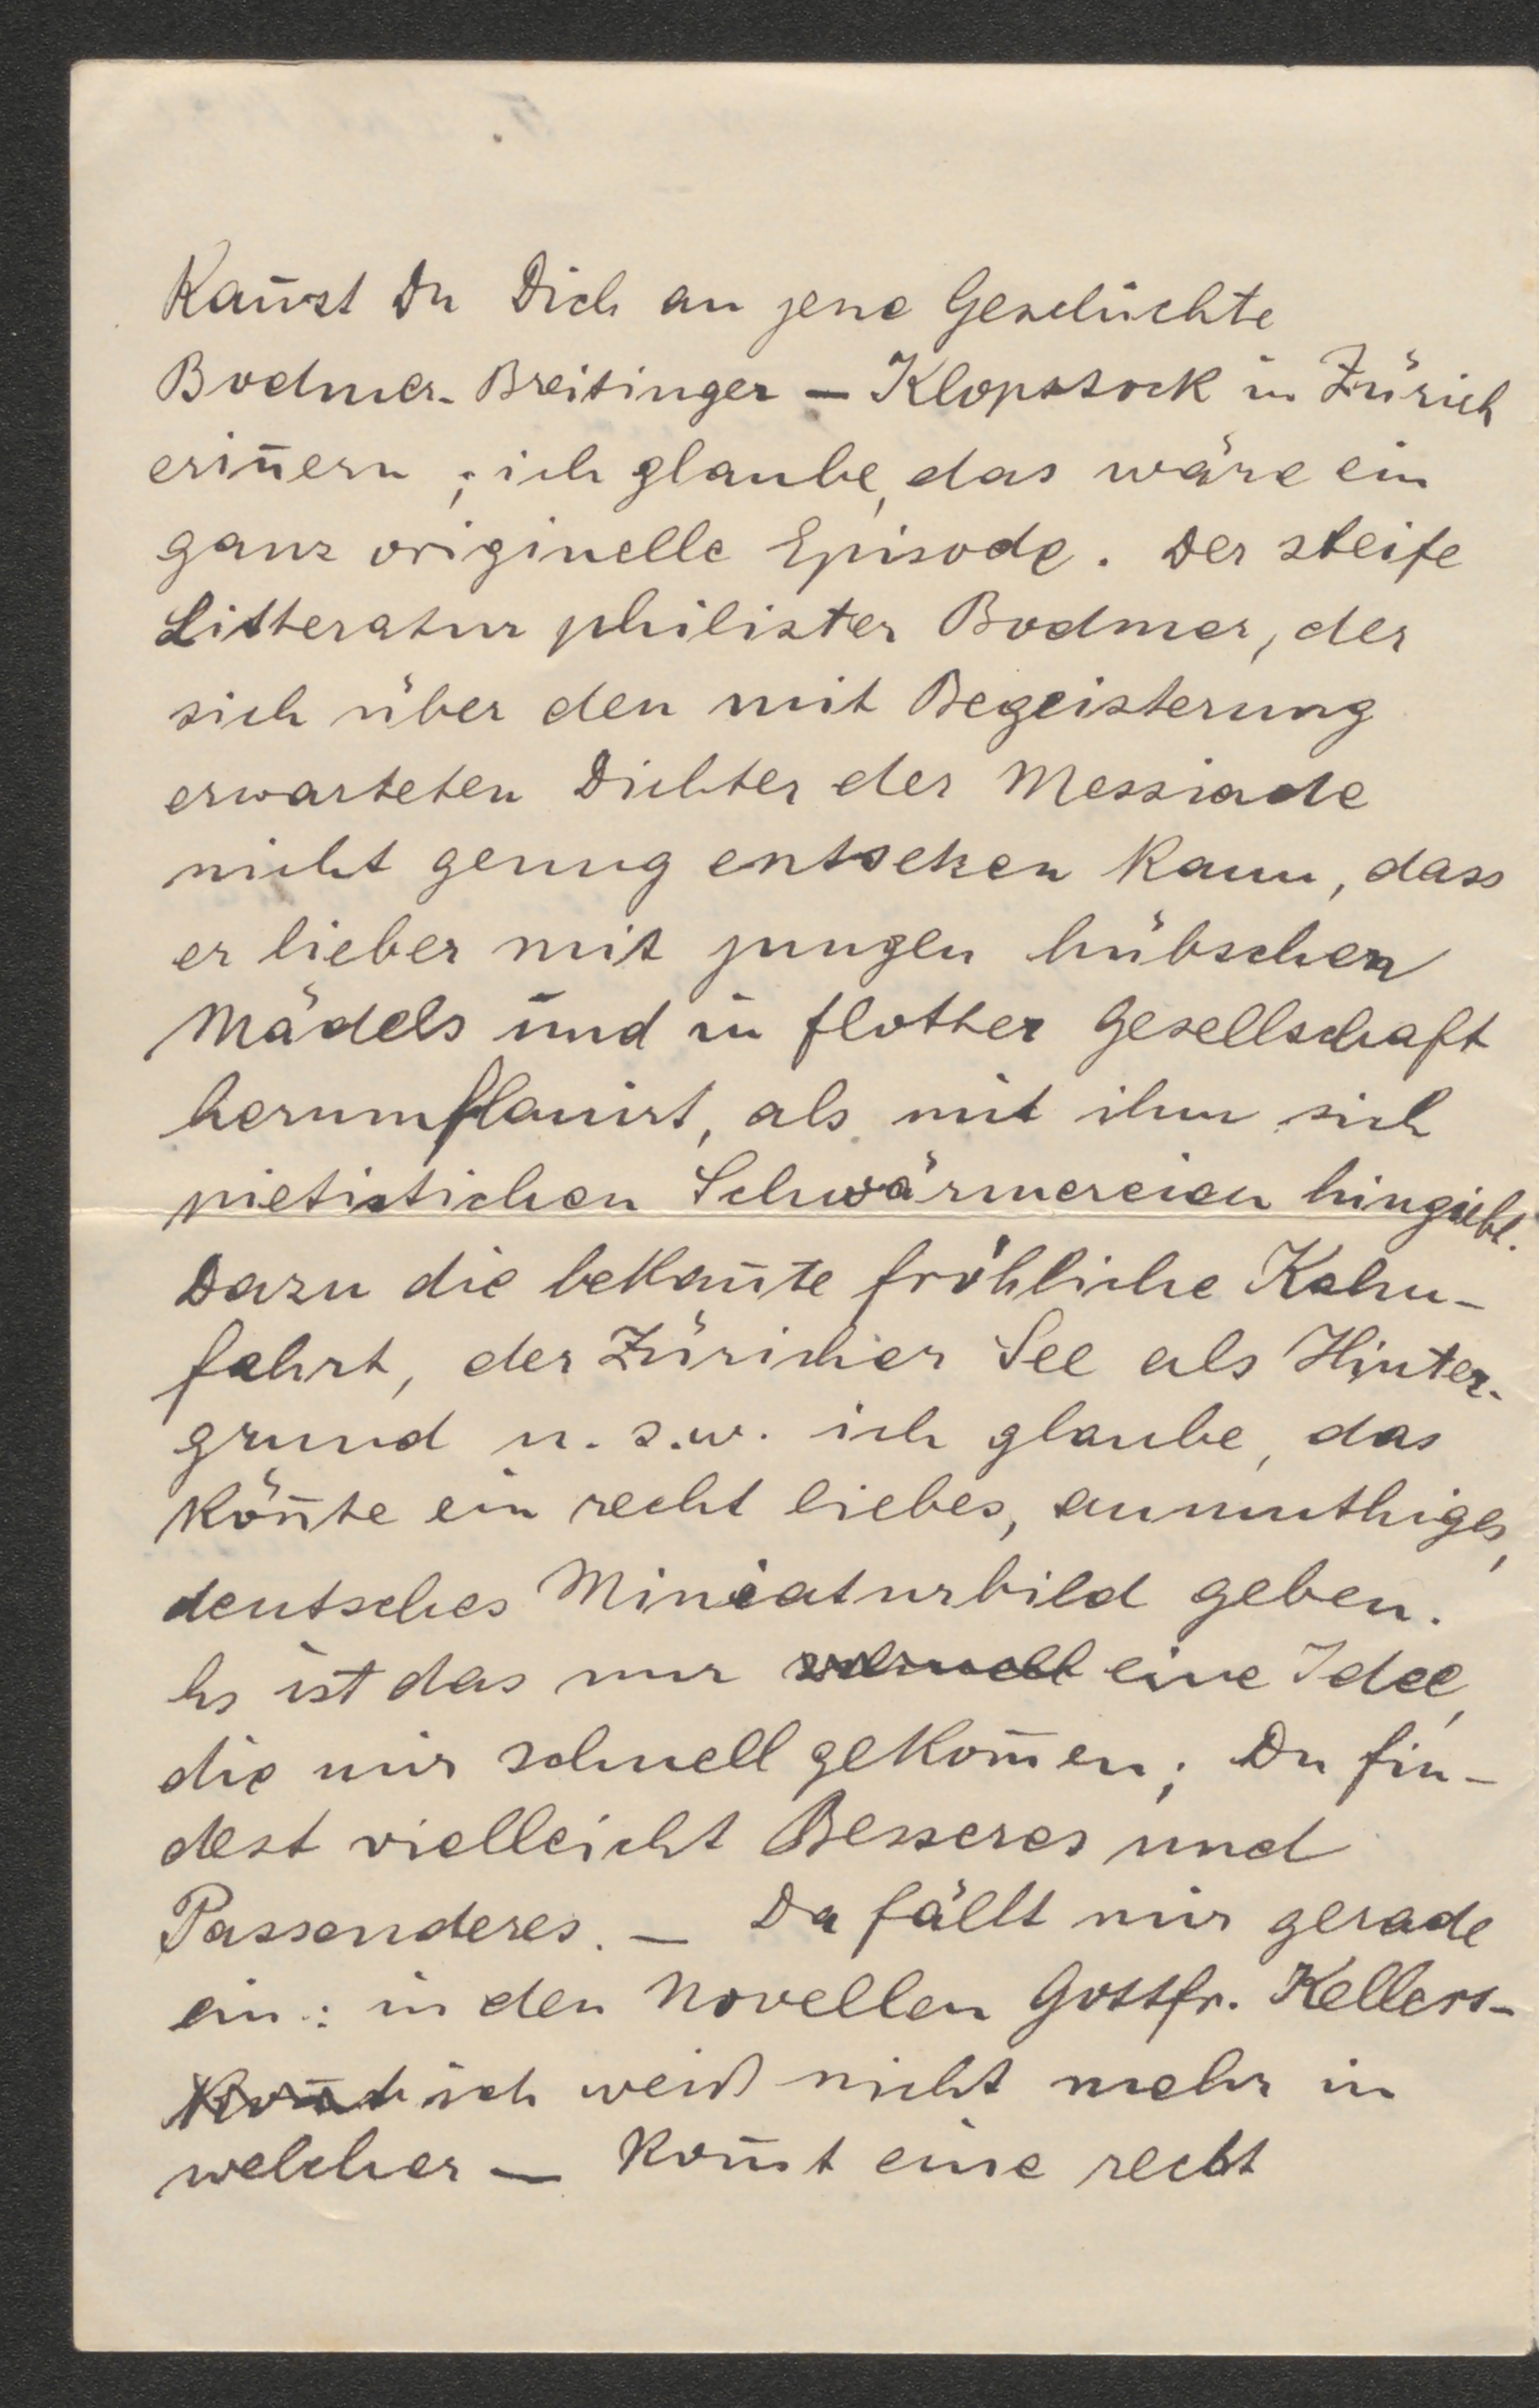 Kan̄st Du Dich an jene Geschichte
Bodmer-Breitinger – Klopstock in Zürich
erin̄ern ; ich glaube, das wäre ein
ganz originelle Episode. Der steife
Litteraturphilister Bodmer, der
sich über den mit Begeisterung
erwarteten Dichter der Messiade
nicht genug entsetzen kann, dass
er lieber mit jungen hübschen
Mädels und in flotter Gesellschaft
herumflanirt, als mit ihm sich
pietistichen Schwärmereien hingiebt.
Dazu die bekan̄te fröhliche Kahn-
fahrt, der Züricher See als Hinter-
grund u. s. w. ich glaube, das
kön̄te ein recht liebes, anmuthiges,
deutsches Miniaturbild geben.
Es ist das nur schnell eine Idee,
die mir schnell gekom̄en; Du fin-
dest vielleicht Besseres und
Passenderes. – Da fällt mir gerade
ein: in den Novellen Gottfr. Kellers –
kom̄t ich weiß nicht mehr in
welcher – kom̄t eine recht